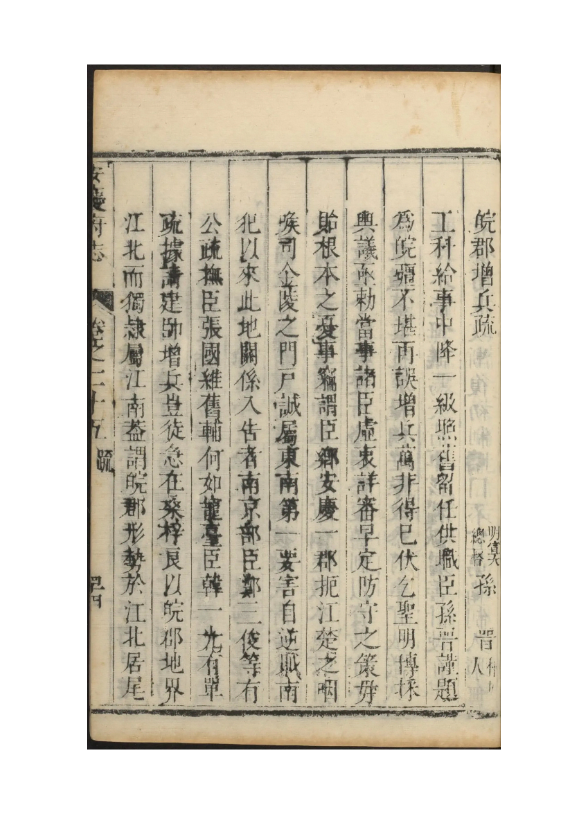 皖郡增兵疏 明 總督 孫晉 人
工科給事中降一級照舊留任供職臣孫晉謹題
爲皖疆不堪再誤增兵萬非得已伏乞聖明博採
輿議亟勅當事諸臣虛衷詳審早定防守之策毋
貽根本之憂事竊謂臣鄉安慶一郡扼江楚之咽
喉司金陵之門戶誠屬東南第一要害自逆賊南
犯以來此地關係入告者南京部臣鄭三俊等有
公疏撫臣張國維舊輔何如寵臺臣韓一光有單
疏據請建帥增兵豈徒急在桑梓良以皖郡地界
江北而獨隸屬江南葢謂皖郡形勢於江北居尾
安慶府志 卷之二十五 疏